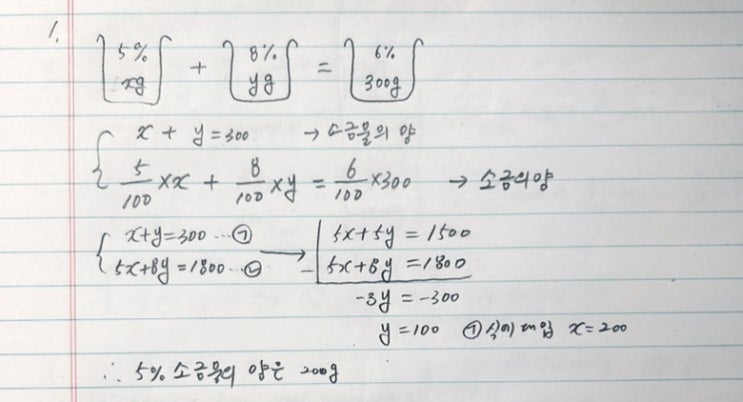 1.
5% 8% 6%
xg + yg = 300g
x + y = 300 → 소금물의 양
5/100 × x + 8/100 × y = 6/100 × 300 → 소금의 양
x+y=300 … ㉠ → 5x+5y = 1500
5x+8y=1800 … ㉡ - 5x+8y = 1800
-3y = -300
y = 100 ㉠식에 대입 x = 200
∴ 5% 소금물의 양은 200g